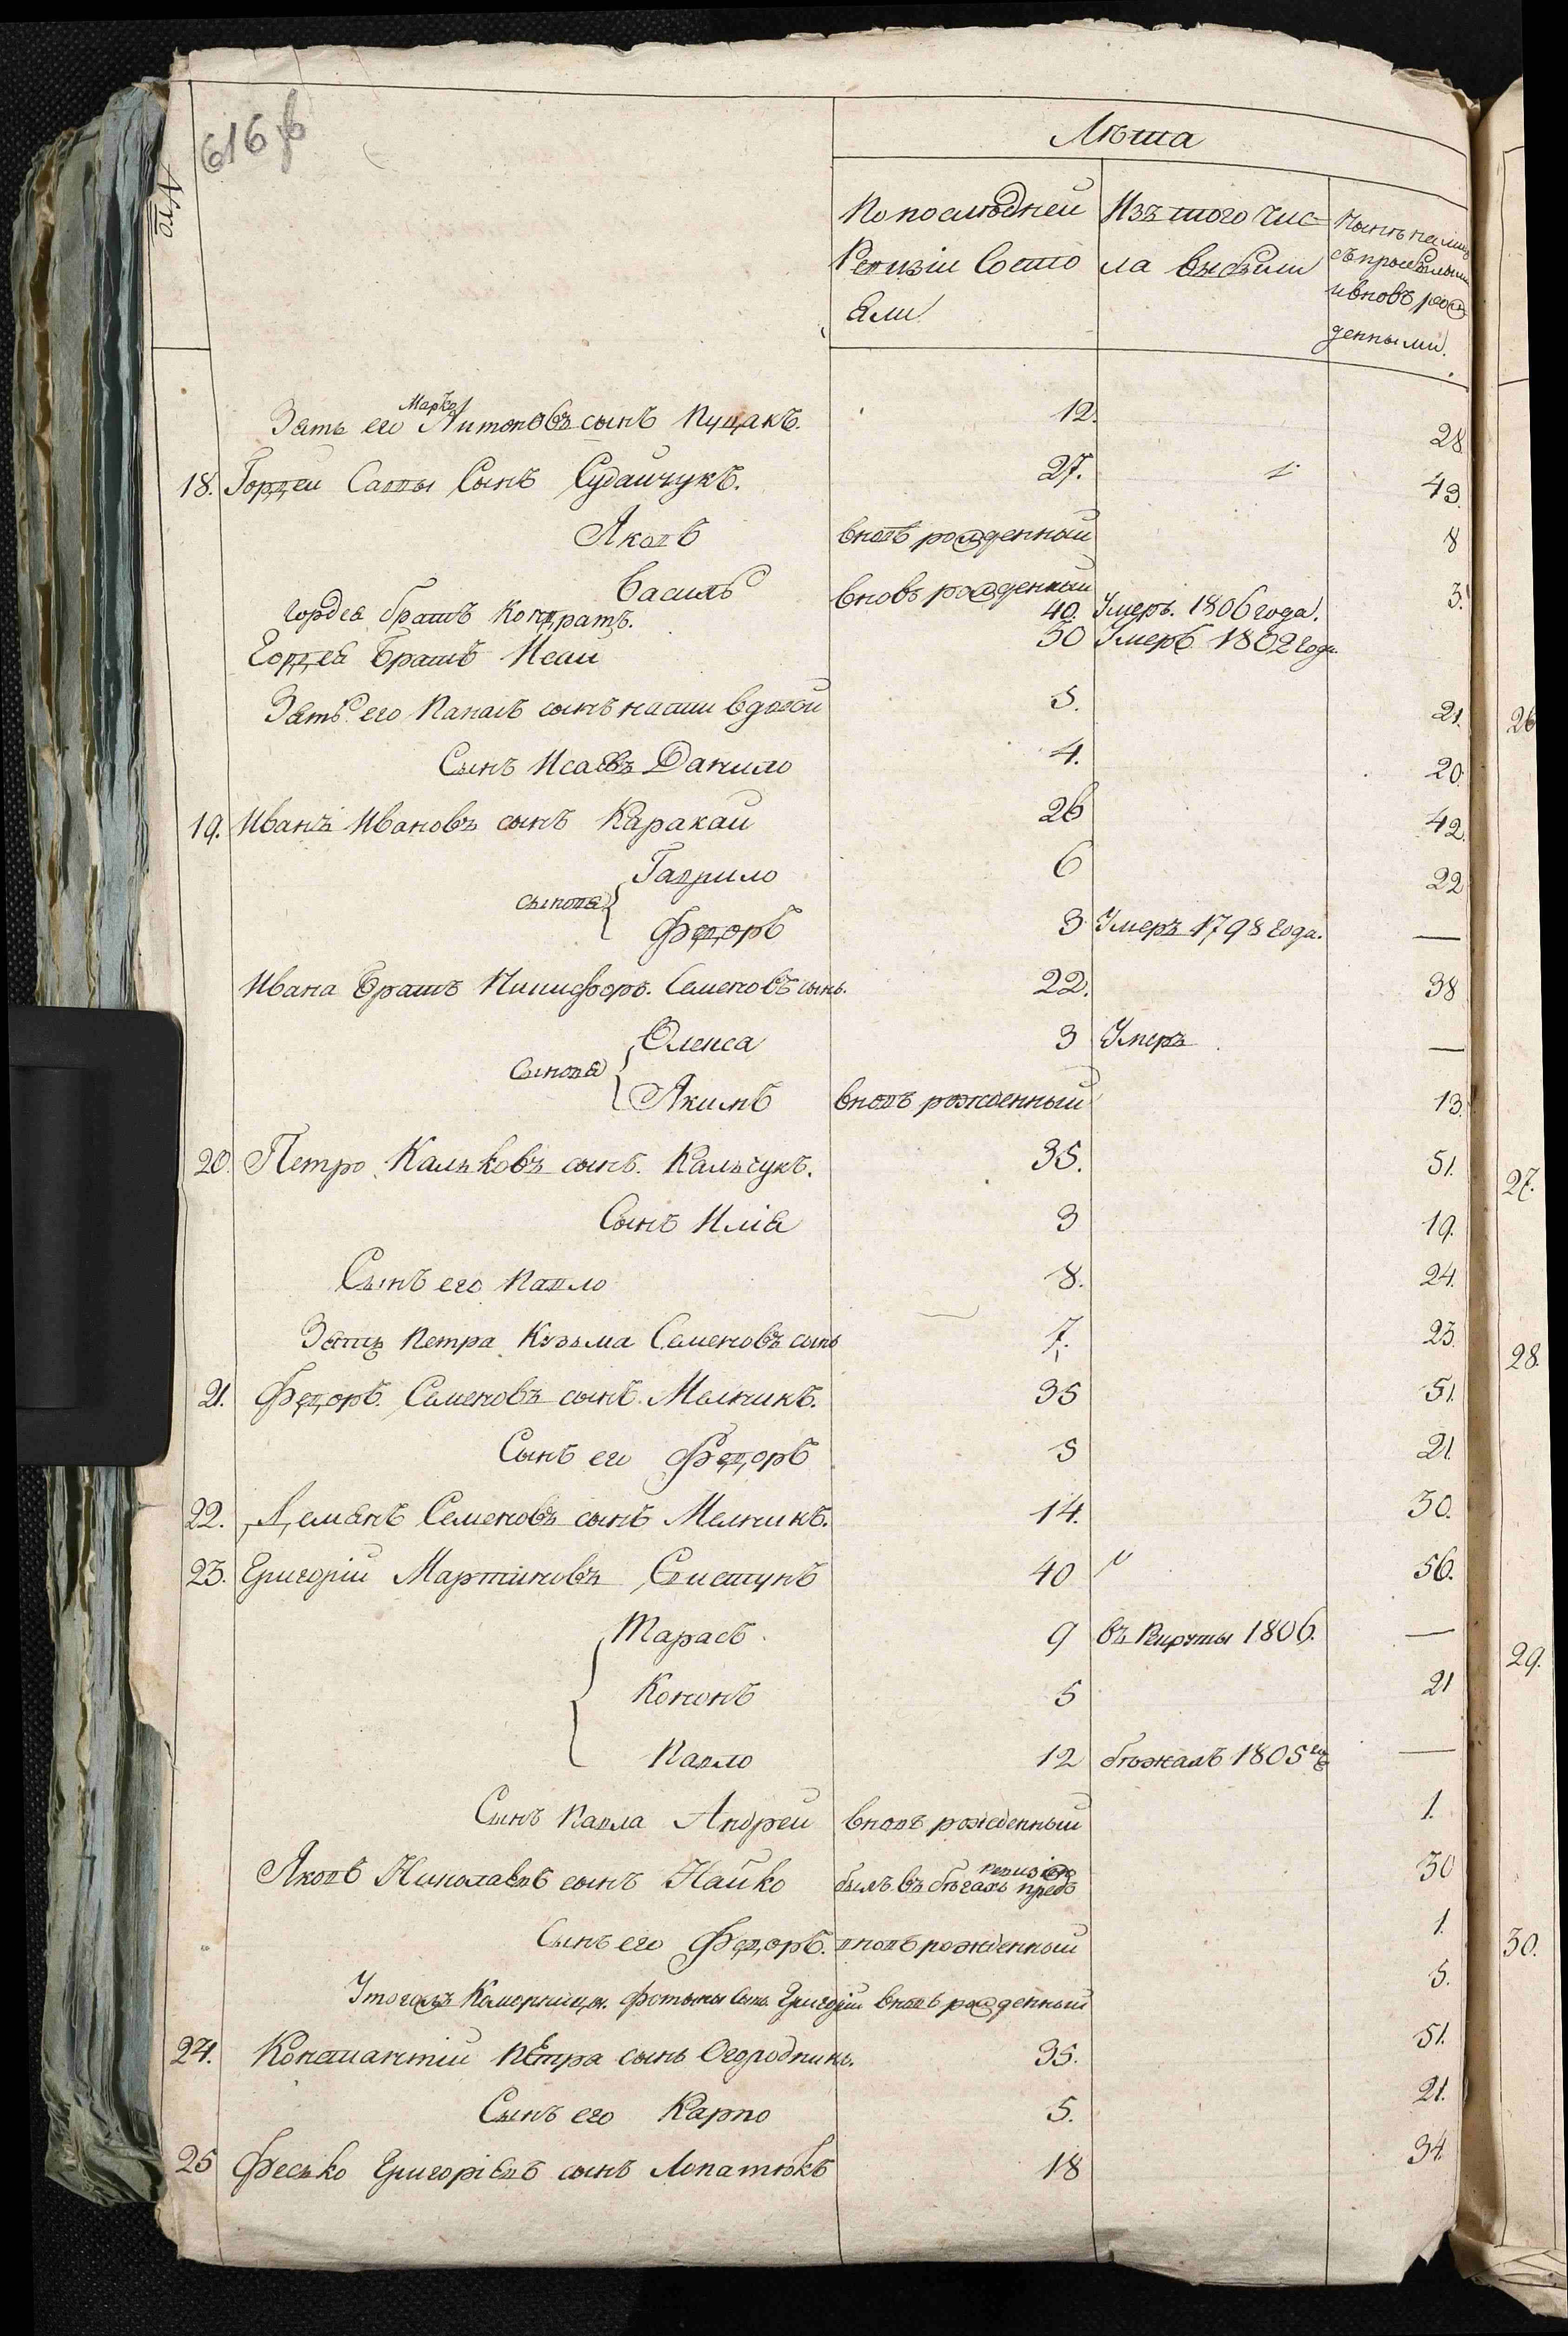 616 об
№
Лѣта
По послѣдней Ревизіи Состояли
Изъ того числа выбыли
Нынѣ на лицо съ прибылыми и вновь рожденными.
Зять его Марко Антоновъ сынъ Пуцакъ. 12. 28
18. Гордей Саввы Сынъ Судайчукъ. 27. 43.
Яковъ вновь рожденный 8
Василь вновь рожденный 3.
Гордея братъ Кондратъ. 40. Умеръ. 1806 года.
Гордея Братъ Исай 30 Умеръ 1802 года
Зять его Панасъ сынъ насти вдовой 5. 21.
Сынъ Исаевъ Данило 4. 20.
19. Иванъ Ивановъ сынъ Каракай 26 42.
сыновя
Гаврило 6 22
Федоръ 3 Умеръ 1798 года. —
Ивана Братъ Никифоръ. Семеновъ сынъ. 22. 38
Сыновя
Олекса 3 Умеръ —
Якимъ вновь рожденный 13.
20. Петро Кальковъ сынъ. Кальчукъ. 35. 51.
Сынъ Илія 3 19.
Сынъ его Павло 8. 24.
Зять Петра Кузьма Семеновъ сынъ 7. 23.
21. Федоръ. Семеновъ сынъ. Мелникъ. 35 51.
Сынъ его Федоръ 5 21.
22. Демянъ Семеновъ сынъ Мелникъ. 14. 30.
23. Григорій Мартиновъ Свистунъ 40 56.
Тарасъ 9 въ Рекруты 1806. —
Кононъ 5 21
Павло 12 бѣжалъ 1805 года —
Сынъ Павла Андрей вновь рожденный 1.
Яковъ Николаевъ сынъ Найко былъ въ бѣгахъ предъ ревизіею 30
Сынъ его Федоръ. вновь рожденный 1.
У тогожъ Коморницы. Фотыны Сынъ Григорій вновь рожденный 5.
24. Константій Петра сынъ Огородникъ. 35. 51.
Сынъ его Карпо 5. 21.
25 Фесько Григоріевъ сынъ Лопатюкъ 18 34.
26
27.
28.
29.
30.